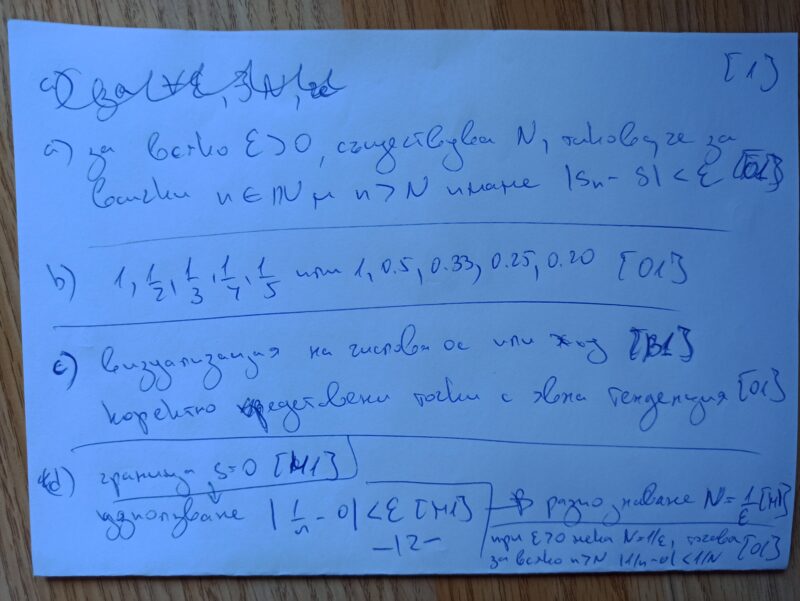 [1]
a) за всяко ε>0, съществува N, такова, че за
всички n ∈ ℕ и n > N имаме |Sn - S| < ε [O1]
b) 1, 1/2, 1/3, 1/4, 1/5 или 1, 0.5, 0.33, 0.25, 0.20 [O1]
c) визуализация на числова ос или [B1]
коректно представени точки с явна тенденция [O1]
d) граница s=0 [M1]
използване |1/n - 0| < ε [M1]
разпознаване N = 1/ε [M1]
при ε>0 нека N=1/ε, тогава
за всяко n>N |1/n-0| < 1/N [O1]
-12-